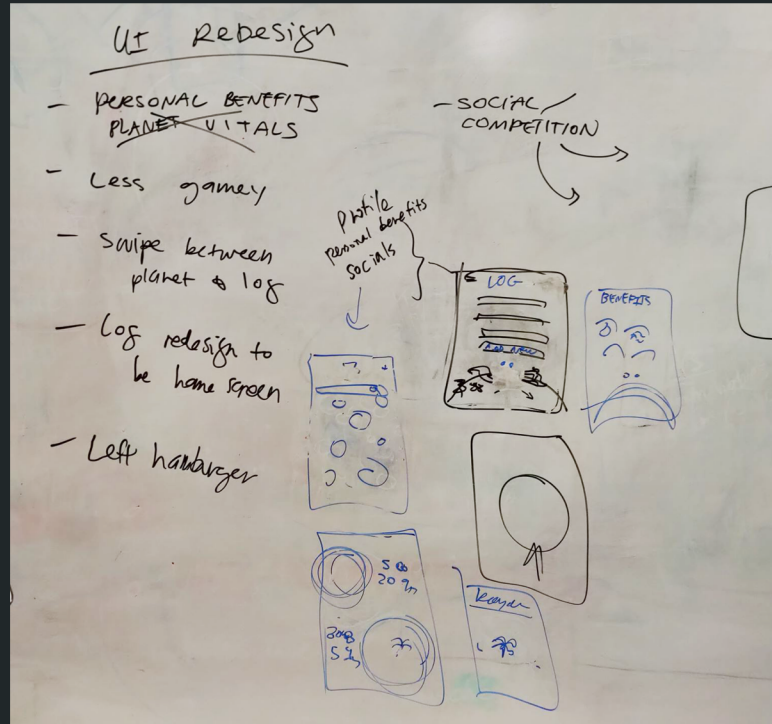 UI Redesign
- PERSONAL BENEFITS
PLANET VITALS
- Less gamey
- Swipe between
planet & log
- Log redesign to
be home screen
- Left hamburger
- SOCIAL/
COMPETITION
Profile
personal benefits
socials
LOG
BENEFITS